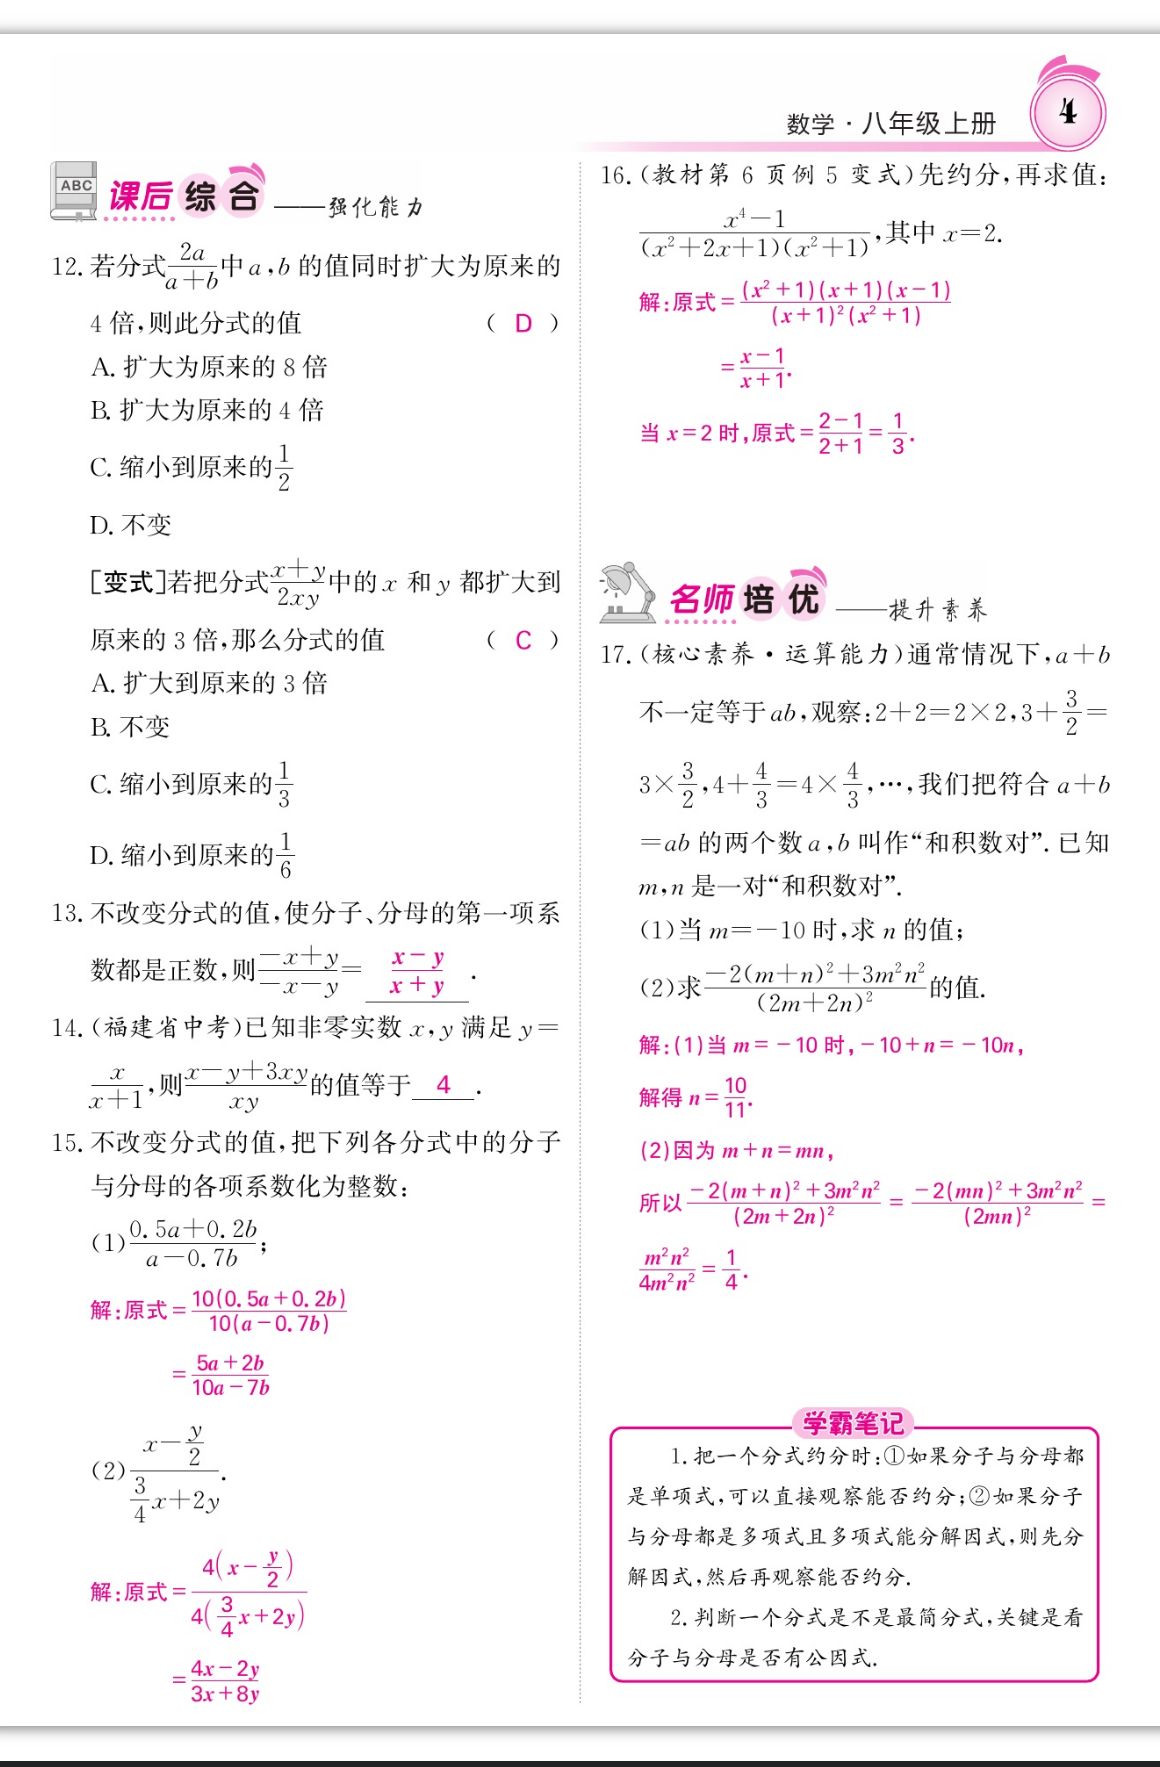 数学·八年级上册 4
ABC 课后综合——强化能力
12. 若分式2a/(a+b)中a,b的值同时扩大为原来的
4倍,则此分式的值 ( D )
A. 扩大为原来的8倍
B. 扩大为原来的4倍
C. 缩小到原来的1/2
D. 不变
[变式]若把分式(x+y)/(2xy)中的x和y都扩大到
原来的3倍,那么分式的值 ( C )
A. 扩大到原来的3倍
B. 不变
C. 缩小到原来的1/3
D. 缩小到原来的1/6
13. 不改变分式的值,使分子、分母的第一项系
数都是正数,则(-x+y)/(-x-y)= (x-y)/(x+y) .
14. (福建省中考)已知非零实数x,y满足y=
x/(x+1),则(x-y+3xy)/(xy)的值等于 4 .
15. 不改变分式的值,把下列各分式中的分子
与分母的各项系数化为整数:
(1)(0.5a+0.2b)/(a-0.7b);
解:原式=10(0.5a+0.2b)/10(a-0.7b)
=(5a+2b)/(10a-7b)
(2)(x-y/2)/(3/4 x+2y).
解:原式=4(x-y/2)/4(3/4 x+2y)
=(4x-2y)/(3x+8y)
16. (教材第6页例5变式)先约分,再求值:
(x⁴-1)/((x²+2x+1)(x²+1)),其中x=2.
解:原式=(x²+1)(x+1)(x-1)/((x+1)²(x²+1))
=(x-1)/(x+1).
当x=2时,原式=(2-1)/(2+1)=1/3.
名师培优——提升素养
17. (核心素养·运算能力)通常情况下,a+b
不一定等于ab,观察:2+2=2×2,3+3/2=
3×3/2,4+4/3=4×4/3,…,我们把符合a+b
=ab的两个数a,b叫作“和积数对”. 已知
m,n是一对“和积数对”.
(1)当m=-10时,求n的值;
(2)求(-2(m+n)²+3m²n²)/(2m+2n)²的值.
解:(1)当m=-10时,-10+n=-10n,
解得n=10/11.
(2)因为m+n=mn,
所以(-2(m+n)²+3m²n²)/(2m+2n)²=(-2(mn)²+3m²n²)/(2mn)²=
m²n²/4m²n²=1/4.
学霸笔记
1. 把一个分式约分时:①如果分子与分母都
是单项式,可以直接观察能否约分;②如果分子
与分母都是多项式且多项式能分解因式,则先分
解因式,然后再观察能否约分.
2. 判断一个分式是不是最简分式,关键是看
分子与分母是否有公因式.